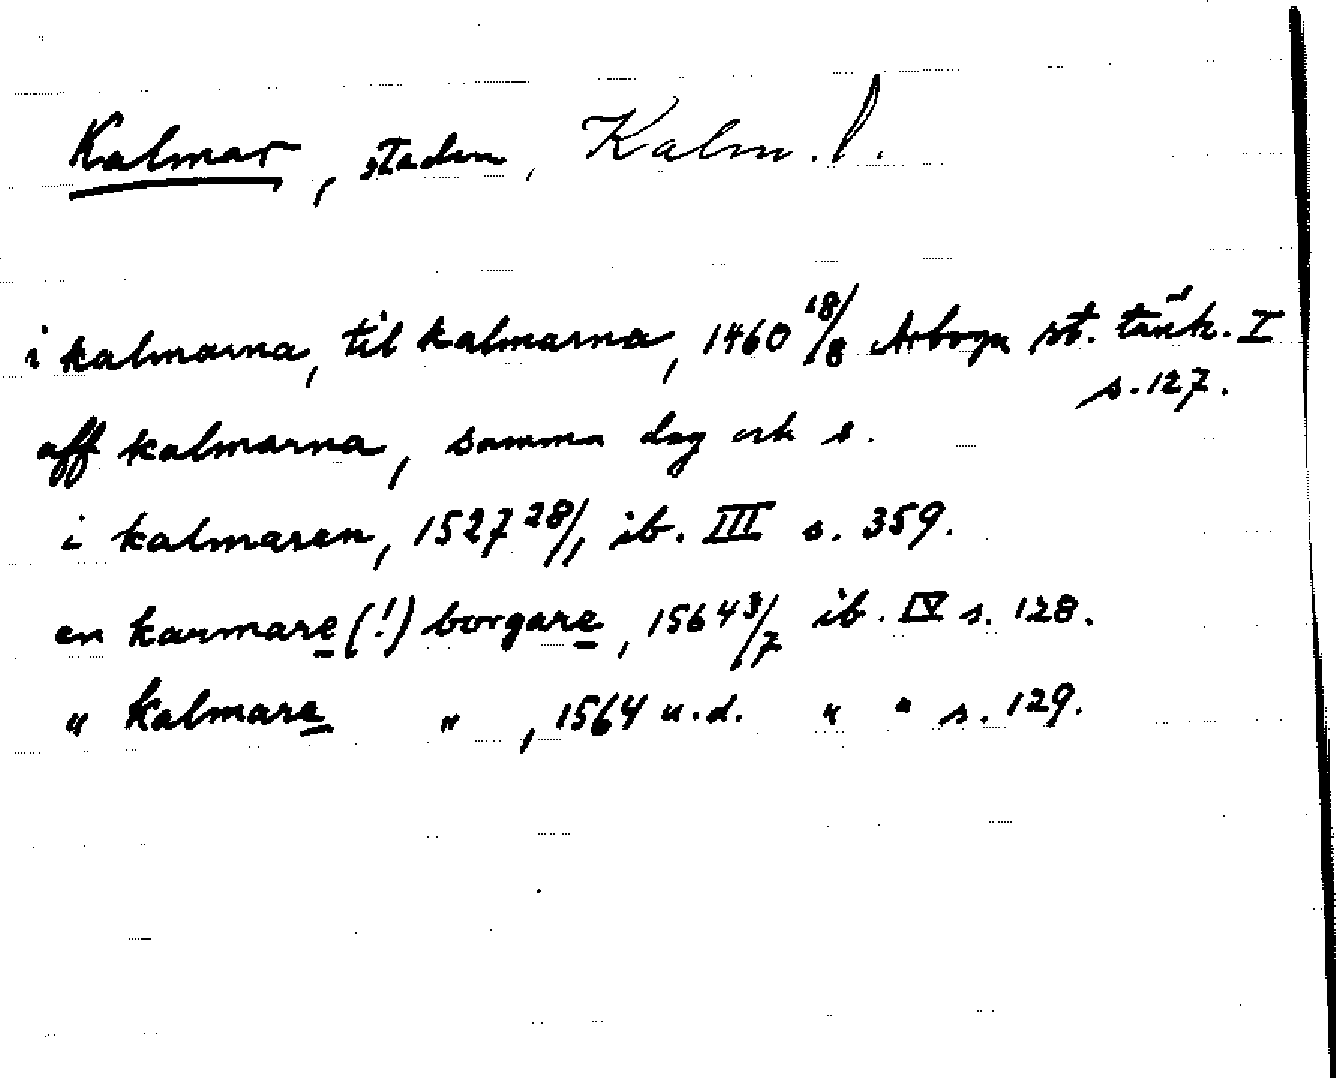 Kalmar, staden, Kalm. l.
i kalmarna, til kalmarna, 1460 18/8 Arboga st. tänk. I
s. 127.
aff kalmarna, samma dag och s.
i kalmaren, 1527 28/1, ib. III s. 359.
en karmare (!) borgare, 1564 3/7 ib. IV s. 128.
" kalmare " , 1564 u.d. " " s. 129.